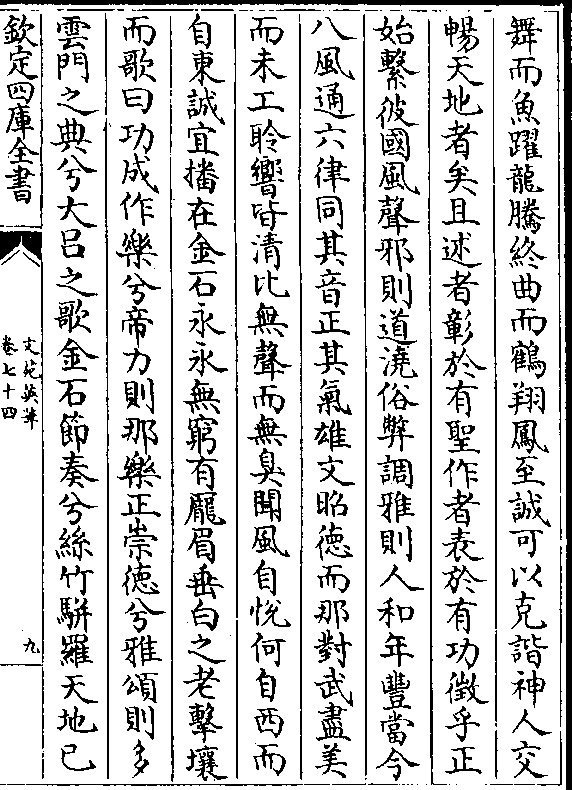 舞而魚躍龍騰終曲而鶴翔鳳至誠可以克諧神人交
暢天地者矣且述者彰於有聖作者表於有功徴乎正
始繫彼國風聲邪則道澆俗弊調雅則人和年豐當今
八風通六律同其音正其氣雄文昭徳而那對武盡美
而未工聆響皆清比無聲而無臭聞風自悅何自西而
自東誠宜播在金石永永無窮有龎眉垂白之老擊壤
而歌曰功成作樂兮帝力則那樂正崇徳兮雅頌則多
雲門之典兮大吕之歌金石節奏兮絲竹駢羅天地已
欽定四庫全書
文苑英華
卷七十四
九